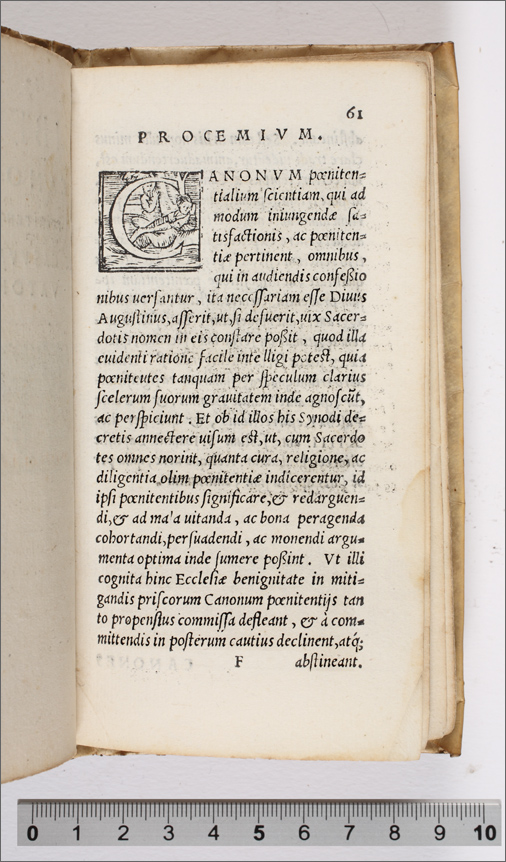 61
PROCEMIVM.
CANONVM pœniten=
tialium ſcientiam, qui ad
modum iniungendæ ſa=
tisfactionis, ac pœniten=
tiæ pertinent, omnibus,
qui in audiendis confeßio
nibus uerſantur, ita neceſſariam eſſe Diuus
Auguſtinus, aſſerit, ut, ſi defuerit, uix Sacer=
dotis nomen in eis conſtare poßit, quod illa
euidenti ratione facile intelligi poteſt, quia
pœniteutes tanquam per ſpeculum clarius
ſcelerum ſuorum grauitatem inde agnoſcūt,
ac perſpiciunt. Et ob id illos his Synodi de=
cretis annectere uiſum eſt, ut, cum Sacerdo
tes omnes norint, quanta cura, religione, ac
diligentia olim pœnitentiæ indicerentur, id
ipſi pœnitentibus ſignificare, & redarguen=
di, & ad ma'a uitanda, ac bona peragenda
cohortandi, perſuadendi, ac monendi argu=
menta optima inde ſumere poßint. Vt illi
cognita hinc Eccleſiæ benignitate in miti=
gandis priſcorum Canonum pœnitentijs tan
to propenſius commiſſa defleant, & à com=
mittendis in poſterum cautius declinent, atq́;
F abſtineant.
0 1 2 3 4 5 6 7 8 9 10